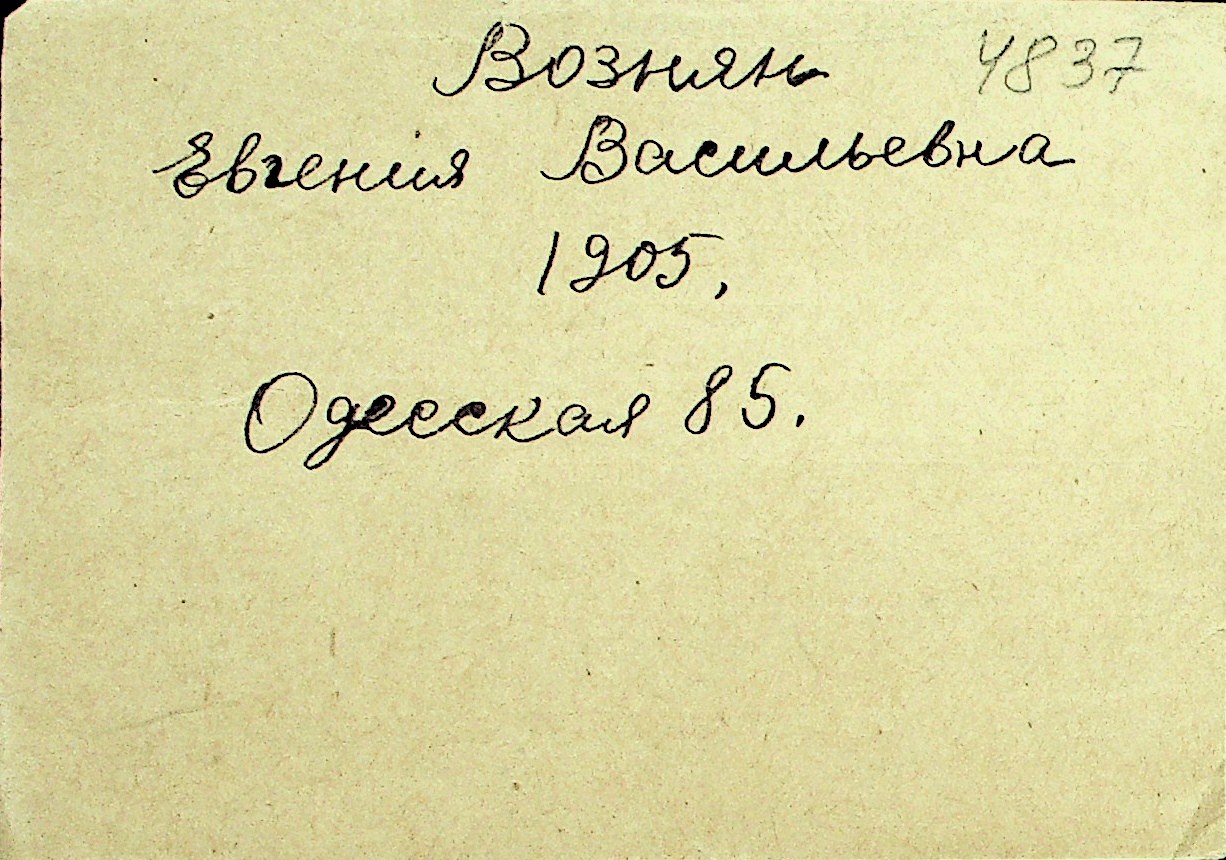 Вознян 4837
Евгения Васильевна
1905,
Одесская 85.